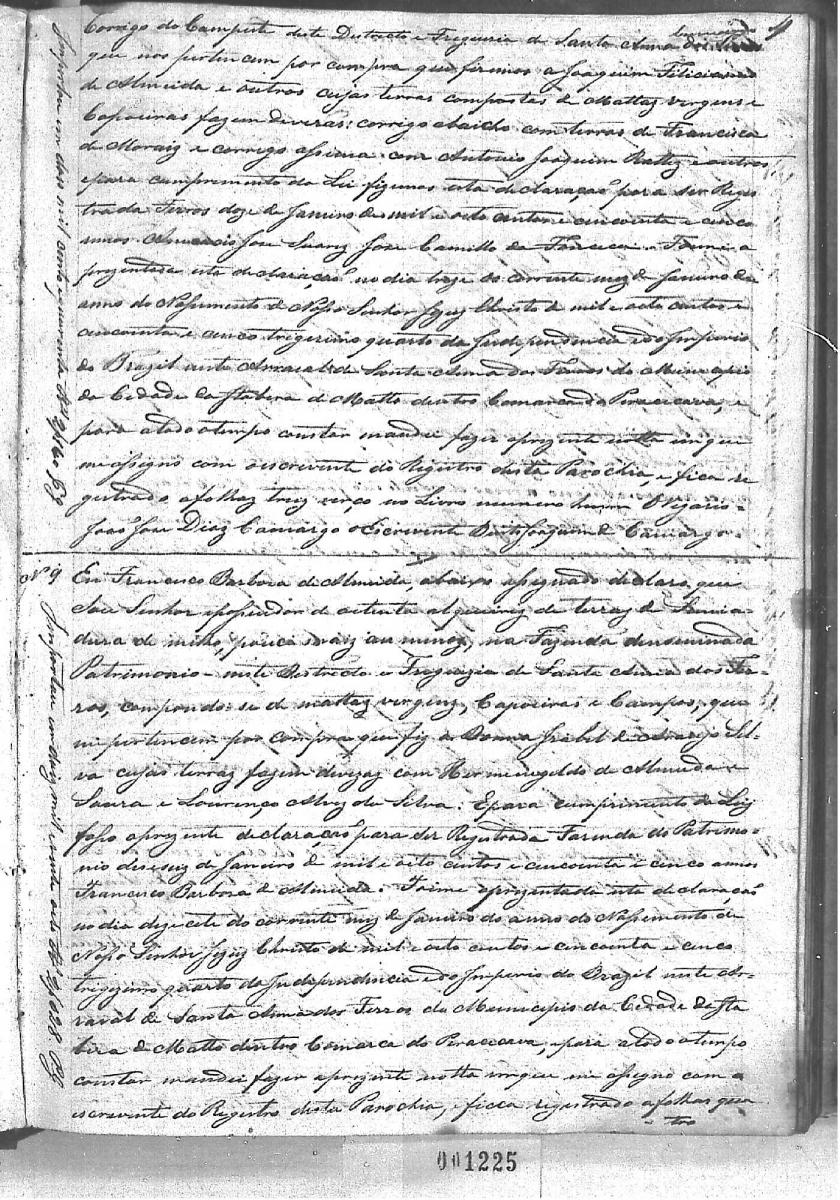 4
Corrigo do Campestre deste Destrecto e Freguezia de Santa Anna dos Ferros
que nos pertencem por compra que fizemos a Joaquim Feliciano
de Almeida e outros cujas terras compostas de Mattaz virgens e
Capoeiras fazem divezas: corrigo abaicho com terras de Francisca
de Moraiz e corrigo assima com Antonio Joaquim e outros
e para cumprimento da Lei fizemos esta declaração para ser Regis
trada Ferros doze de Janeiro de mil e oito centos e cincoenta e cinco
annos José Jose Camillo da Foi me a
prezentada esta declaração no dia treze do corrente mez de Janeiro do
anno do Nassimento de Nosso Senhor Jezuz Christo de mil e oito centos e
cincoenta e cinco trigezimo quarto da Independencia e do Imperio
do Brazil neste Arraial de Santa Anna dos Ferros do Municipio
da Cidade da Itabira de Matto dentro Comarca do Piracicava, e
para a todo o tempo constar mandei fazer a prezente notta em que
me assigno com o escrevente do Registro desta Parochia, e fica re
gistrado a folhaz trez verço no Livro numero hum O Vigario
João Jose Diaz Camargo o Escrevente Joaquim de Camargo.
Nº 9 Eu Francisco Barboza de Almeida, abaixo assignado declaro, que
Sou Senhor e possuidor de oitenta alqueirez de terraz de
dura de milho, pouco maiz ou menoz, na Fazenda denominada
Patrimonio neste Destrecto e Freguezia de Santa Anna dos Fer-
ros, compondo-se de mattaz virgenz, Capoeiras e Campos, que
me pertencem por compra que fiz a Donna Izabel de Araujo Sil-
va cujas terraz fazem divizaz com Hermenegildo de Almeida e
e Lourenço Alvez da Silva: E para cumprimento da Lei
fasso a prezente declaração para ser Registrada Fazenda do Patrimo-
nio de Janeiro de mil e oito centos e cincoenta e cinco annos
Francisco Barboza de Almeida. Foi me aprezentada esta declaração
no dia dezecete do corrente mez de Janeiro do anno do Nassimento de
Nosso Senhor Jezuz Christo de mil e oito centos e cincoenta e cinco
trigezimo quarto da Independencia e do Imperio do Brazil neste Ar-
raial de Santa Anna dos Ferros do Municipio da Cidade da Ita
bira de Matto dentro Comarca do Piracicava, e para a todo o tempo
constar mandei fazer a prezente notta em que me assigno com o
escrevente do Registro desta Parochia, e fica registrado a folhas qua
tro
001225